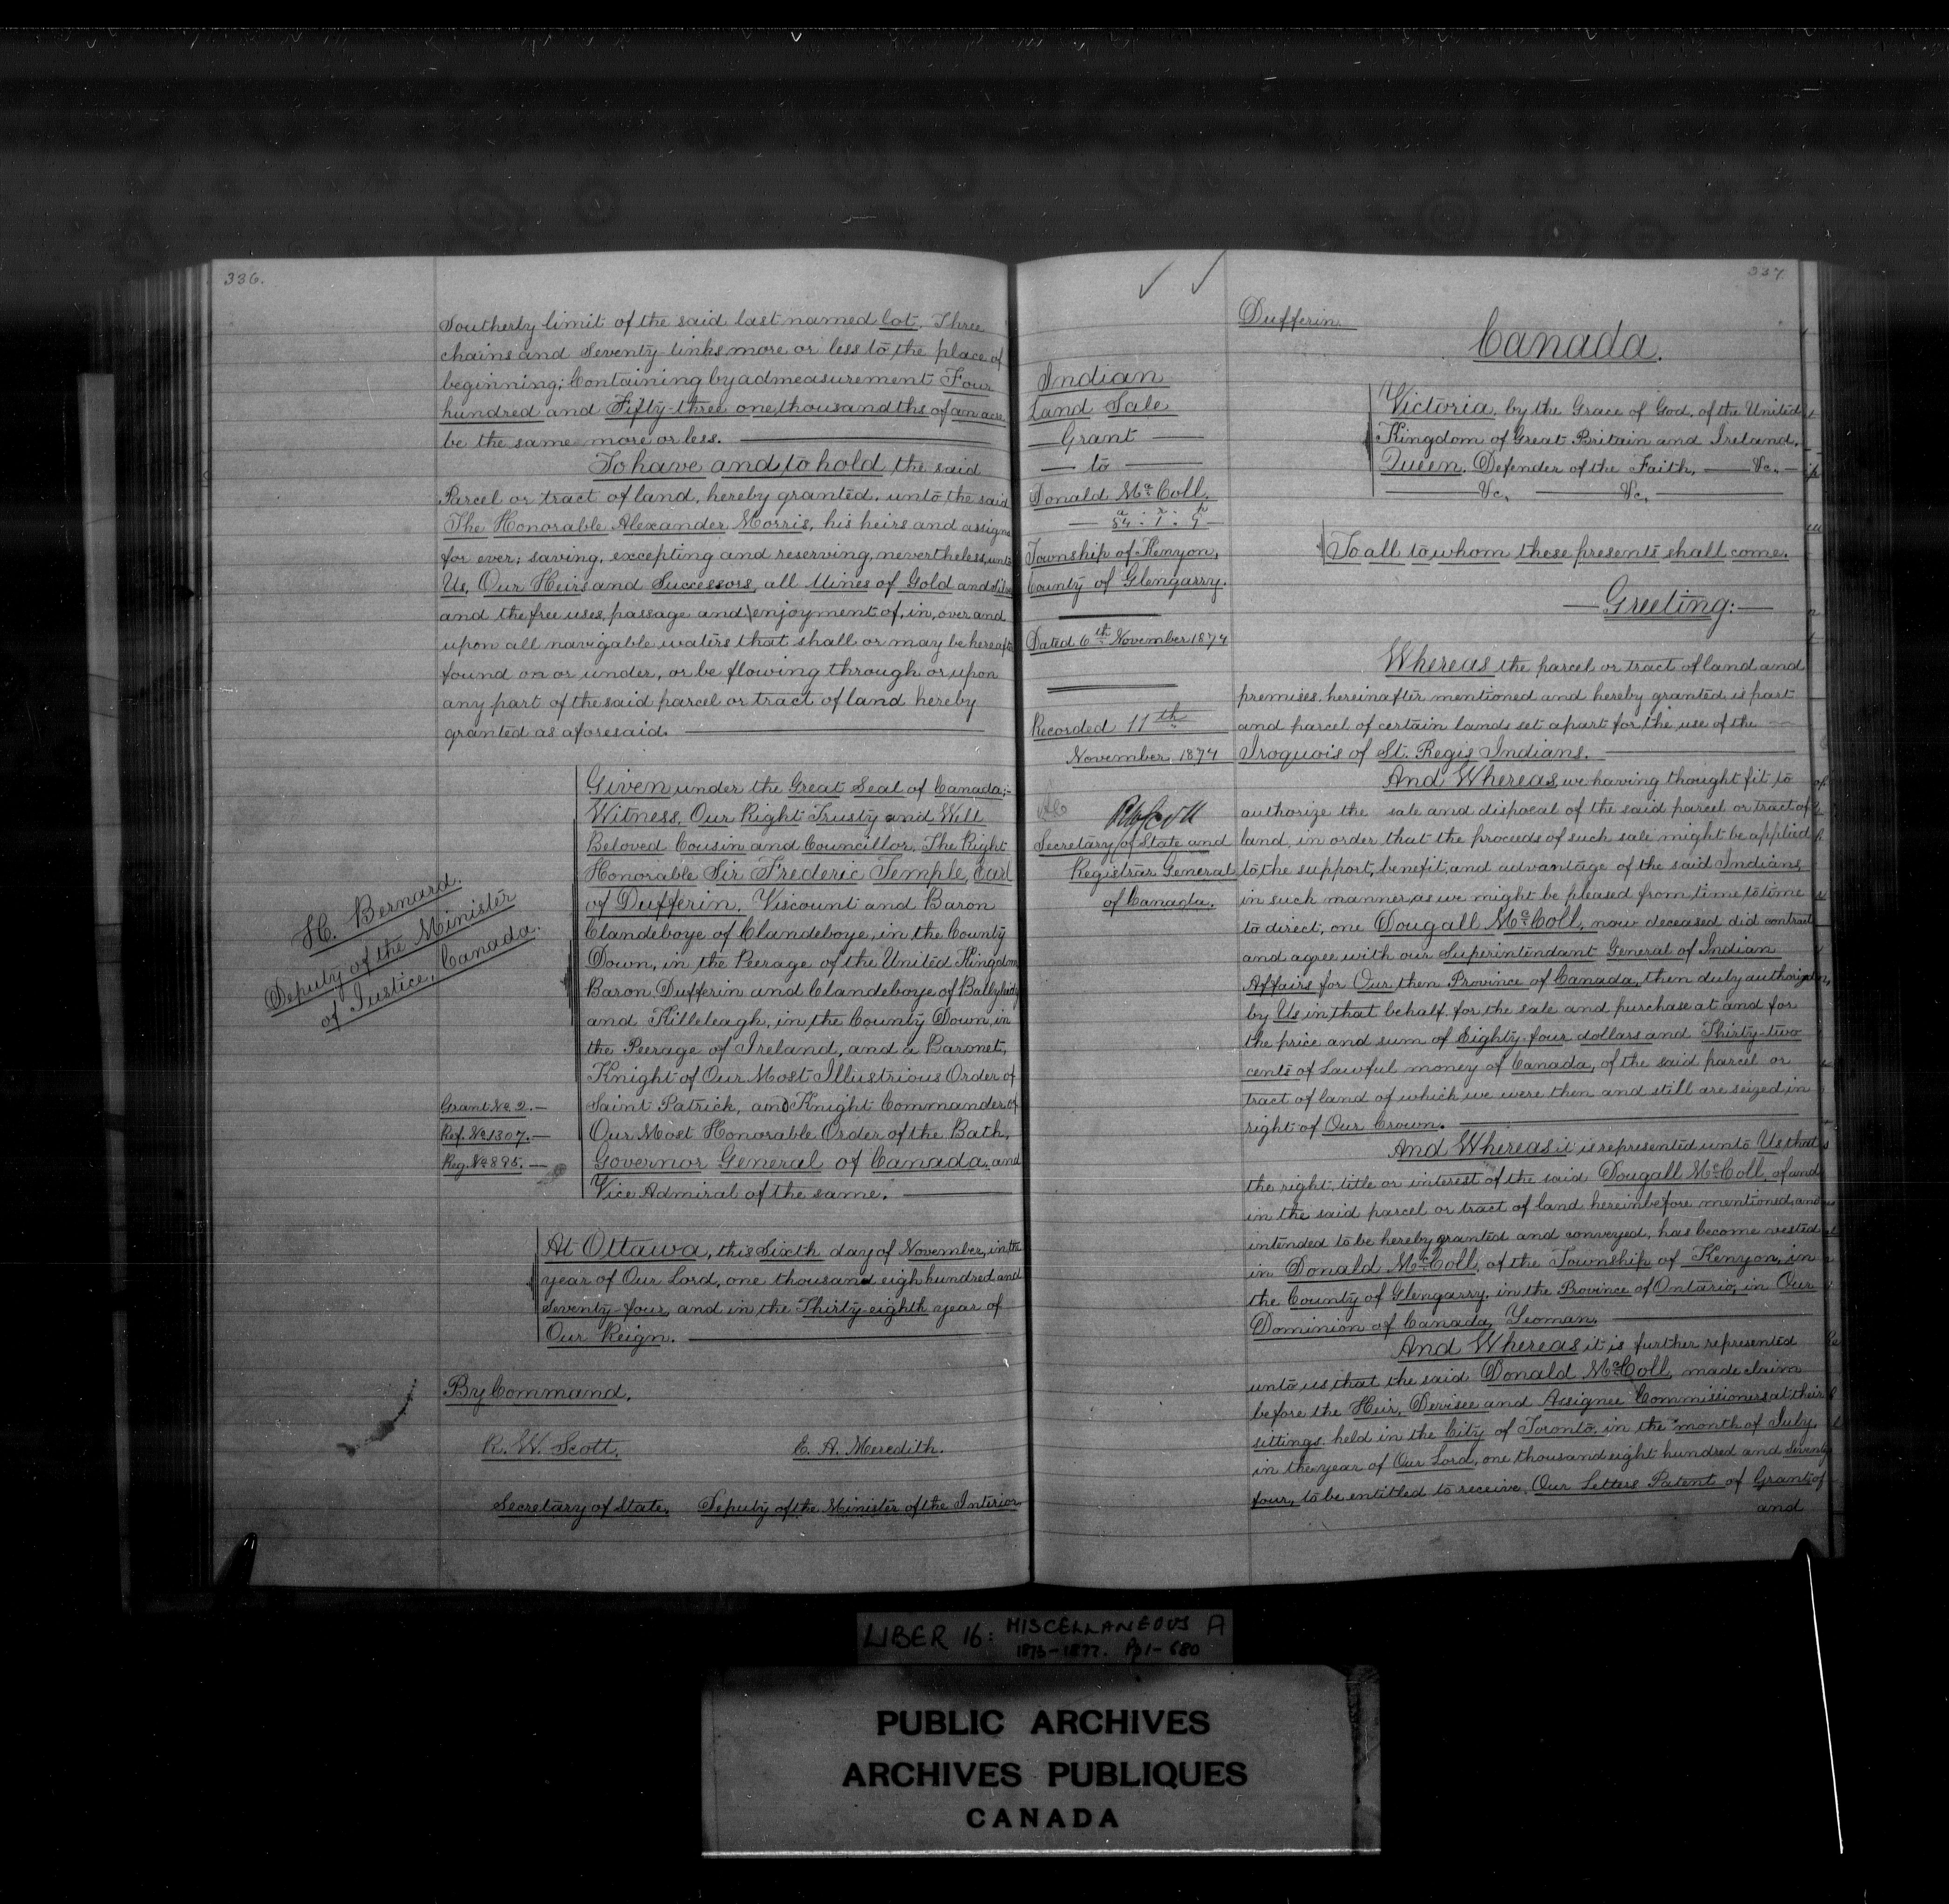 336.
Southerly limit of the said last named lot. Three
chains and Seventy links more or less to the place of
beginning; Containing by admeasurement Four
hundred and Fifty-three one thousandths of an acre
be the same more or less.
To have and to hold the said
Parcel or tract of land, hereby granted, unto the said
The Honorable Alexander Morris, his heirs and assigns
for ever; saving, excepting and reserving, nevertheless, unto
Us, Our Heirs and Successors, all Mines of Gold and Silver
and the free uses, passage and enjoyment of, in, over and
upon all navigable waters that shall or may be hereafter
found on or under, or be flowing through or upon
any part of the said parcel or tract of land hereby
granted as aforesaid.
Given under the Great Seal of Canada;-
Witness, Our Right Trusty and Well
Beloved Cousin and Councillor, The Right
Honorable Sir Frederic Temple, Earl
of Dufferin, Viscount and Baron
Clandeboye of Clandeboye, in the County
Down, in the Peerage of the United Kingdom
Baron Dufferin and Clandeboye of Ballyleidy
and Killeleagh, in the County Down, in
the Peerage of Ireland, and a Baronet,
Knight of Our Most Illustrious Order of
Saint Patrick, and Knight Commander of
Our Most Honorable Order of the Bath,
Governor General of Canada, and
Vice Admiral of the same.
H. Bernard.
Deputy of the Minister
of Justice, Canada.
Grant No. 2.—
Ref. No. 1307.—
Reg. No. 895.—
At Ottawa, this Sixth day of November, in the
year of Our Lord, one thousand eigh hundred and
seventy-four, and in the Thirty-eighth year of
Our Reign.
By Command.
R. W. Scott. E. A. Meredith.
Secretary of State. Deputy of the Minister of the Interior.
337
Dufferin.
Canada.
Indian
Land Sale
Grant
to
Donald McColl.
Township of Kenyon,
County of Glengarry.
Dated 6th November 1874
Recorded 11th
November, 1874
RW Scott
Secretary of State and
Registrar General
of Canada.
Victoria, by the Grace of God, of the United
Kingdom of Great Britain and Ireland,
Queen, Defender of the Faith, — &c, —
&c, &c,
To all to whom these presents shall come.
— Greeting:—
Whereas the parcel or tract of land and
premises hereinafter mentioned and hereby granted is part
and parcel of certain lands set apart for the use of the
Iroquois of St. Regis Indians.
And Whereas, we having thought fit to
authorize the sale and disposal of the said parcel or tract of
land, in order that the proceeds of such sale might be applied
to the support, benefit and advantage of the said Indians,
in such manner, as we might be pleased from time to time
to direct; one Dougall McColl, now deceased did contract
and agree with our Superintendant General of Indian
Affairs for Our then Province of Canada, then duly authorized
by Us in that behalf for the sale and purchase at and for
the price and sum of Eighty four dollars and Thirty-two
cents of Lawful money of Canada, of the said parcel or
tract of land of which we were then and still are seized in
right of Our Crown.
And Whereas it is represented unto Us that
the right, title or interest of the said Dougall McColl, of and
in the said parcel or tract of land hereinbefore mentioned, and
intended to be hereby granted and conveyed, has become vested
in Donald McColl, of the Township of Kenyon, in
the County of Glengarry, in the Province of Ontario, in Our
Dominion of Canada, Yeoman.
And Whereas it is further represented
unto us that the said Donald McColl, made claim
before the Heir, Devisee and Assignee Commissioners at their
sittings held in the City of Toronto, in the month of July,
in the year of Our Lord, one thousand eight hundred and seventy
four, to be entitled to receive, Our Letters Patent of Grant of
and
LIBER 16: MISCELLANEOUS A
1873-1877. Pp 1-680
PUBLIC ARCHIVES
ARCHIVES PUBLIQUES
CANADA